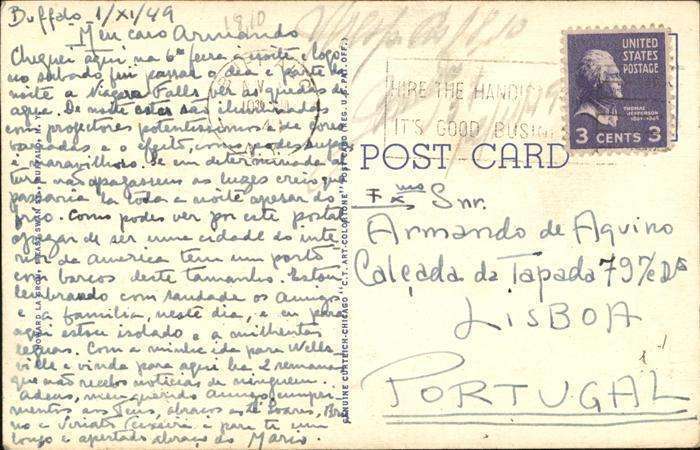 Buffalo, 1/XI/49
Meu caro Armando
Cheguei aqui na 6ª feira à noite e logo
no sabado fui passar o dia e parte da
noite a Niagara Falls ver as quedas de
agua. De noite estas são iluminadas
com projectores potentissimos e de cores
variadas e o efeito, como podes supor
é maravilhoso. Se em determinada al-
tura não apagassem as luzes creio que
passaria lá toda a noite apesar do
frio. Como podes ver por este postal
apezar de ser uma cidade do inte-
rior da America tem um porto
com barcos deste tamanho. Estou
lembrando com saudade os Amigos
e a familia, neste dia, e eu para
aqui estou isolado e a milhentas
leguas. Com a minha ida para Wells-
ville e vinda para aqui ha 2 semanas
que não recebo noticias de ninguem.
Adeus, meu querido Amigo cumpri-
mentos aos Teus, abraços ao Soares, Bru-
no e Viriato Teixeira e para ti um
longo e apertado abraço do Mario.
1810
HIRE THE HANDI
IT'S GOOD BUSIN
UNITED
STATES
POSTAGE
THOMAS
JEFFERSON
1801-1805
3 CENTS 3
POST CARD
GENUINE CURTEICH-CHICAGO "C.T. ART-COLORTONE" POST CARD (REG. U.S. PAT. OFF.)
Exmo Snr.
Armando de Aquino
Calçada da Tapada 79 7/c Dº
LISBOA
PORTUGAL